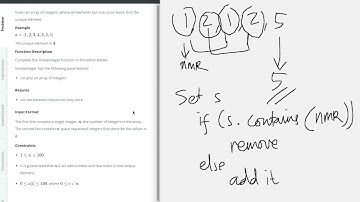 Given an array of integers, where all elements but one occur twice, find the
unique element.
Example
a = [1, 2, 3, 4, 3, 2, 1]
The unique element is 4.
Function Description
Complete the lonelyinteger function in the editor below.
lonelyinteger has the following parameter(s):
int a[n]: an array of integers
Returns
int: the element that occurs once
Input Format
The first line contains a single integer, n, the number of integers in the array.
The second line contains n space-separated integers that describe the values in
a.
Constraints
1 ≤ n < 100
It is guaranteed that n is an odd number and that there is one unique
element.
0 ≤ a[i] ≤ 100, where 0 ≤ i < n.
Problem
1 2 1 2 5
nmr
5
Set s
if (s.contains(nmr))
remove
else
add it